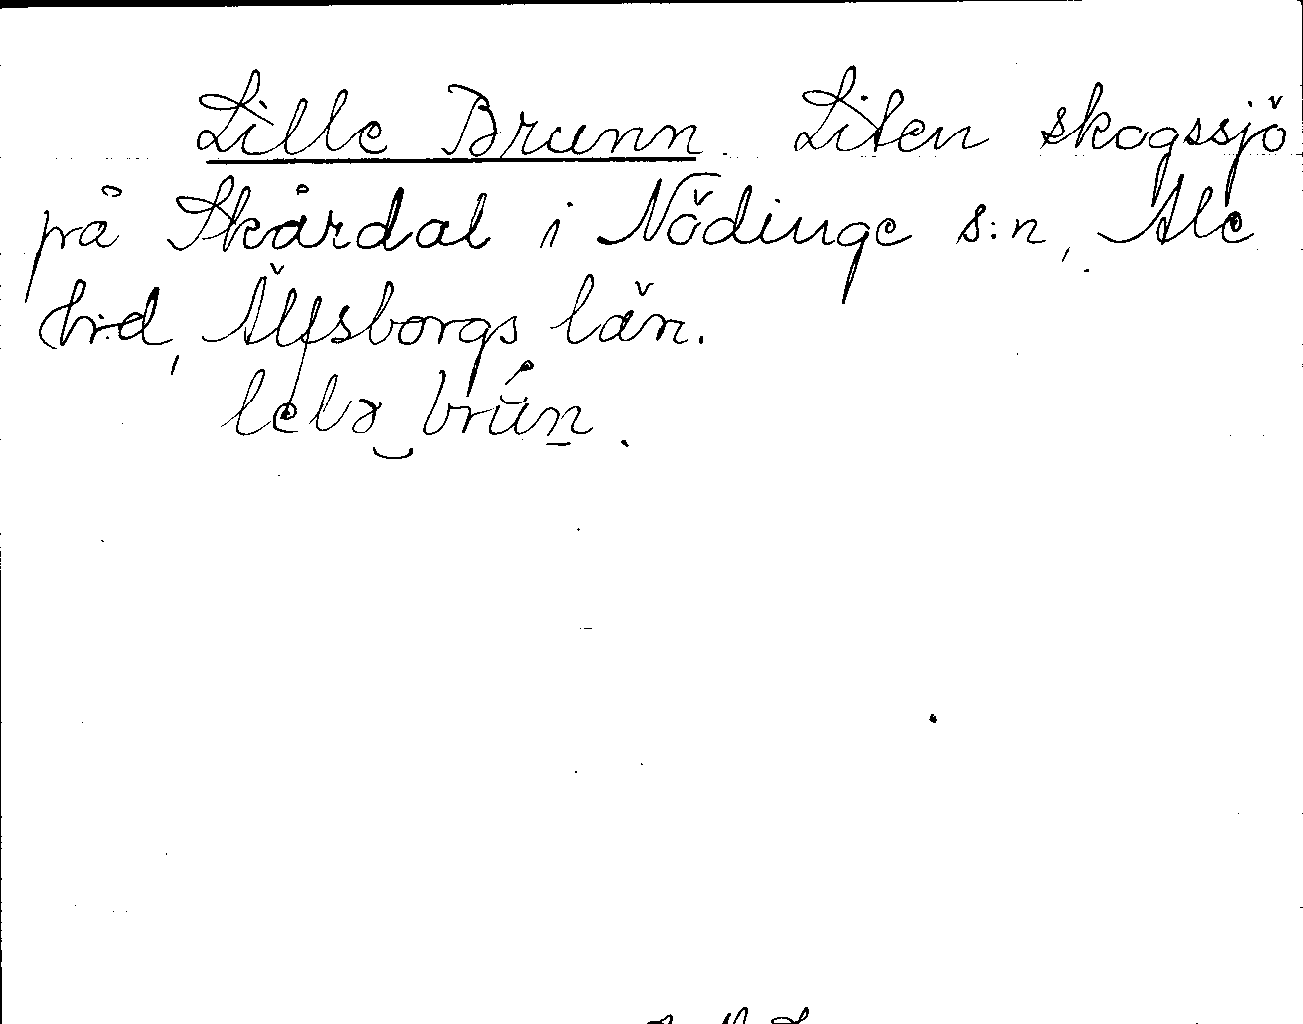 Lille Brunn. Liten skogssjö
på Skårdal i Nödinge s:n, Ale
hrd, Älfsborgs län.
lelə brún.